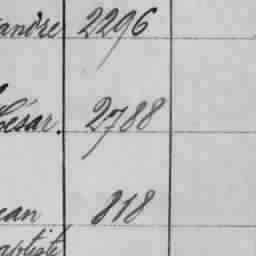 andre 2296
César. 2788
ean 818
aptiste